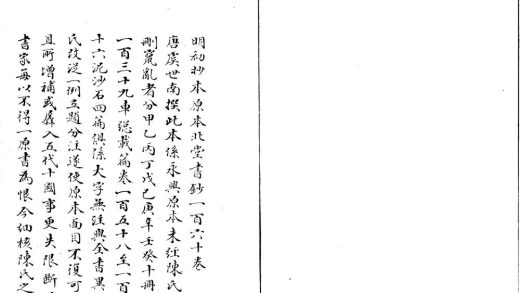 明初抄本原本北堂書鈔一百六十卷
唐虞世南撰此本係永興原本未經陳氏
刪竄亂者分甲乙丙丁戊己庚辛壬癸十冊
一百三十九車總載篇卷一百五十八至一百
十六泥沙石四篇俱係大字無注與全書異
氏改從一例立題分注遂使原本面目不復可
且所增補或羼入五代十國事更失限斷
書家每以不得一原書為恨今細核陳氏之